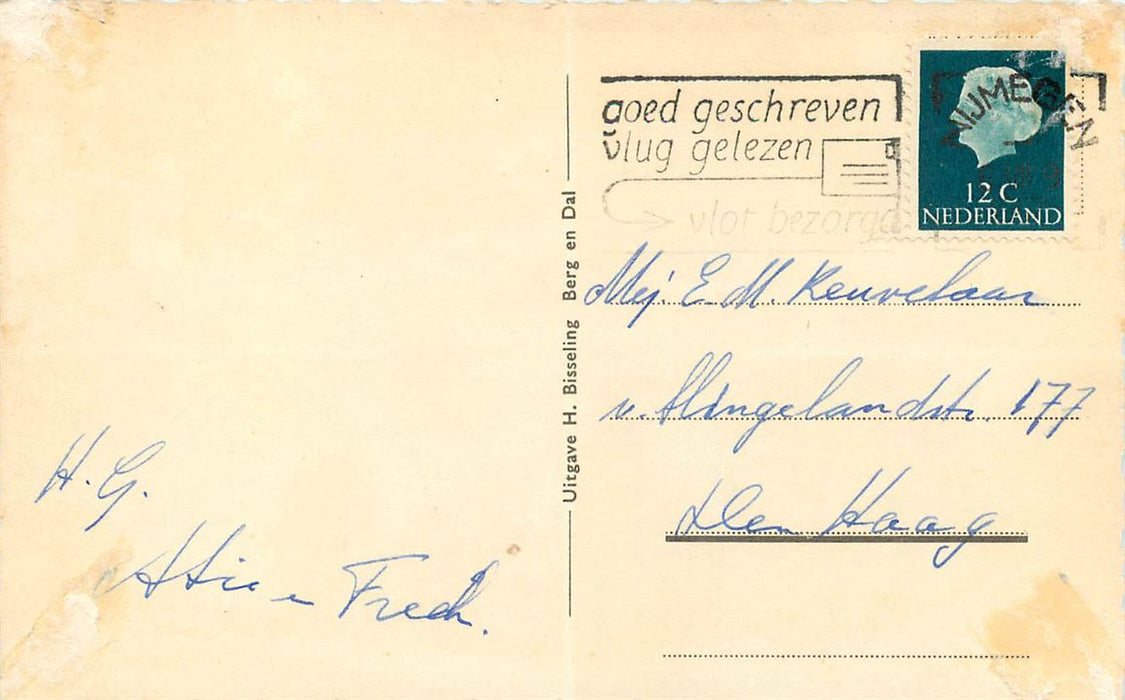 H. G.
Atie - Fred.
Uitgave H. Bisseling Berg en Dal
goed geschreven
vlug gelezen
vlot bezorgd
NIJMEGEN
12 C
NEDERLAND
Mej. E. M. Keuvelaar
v. Slingelandstr. 177
Den Haag